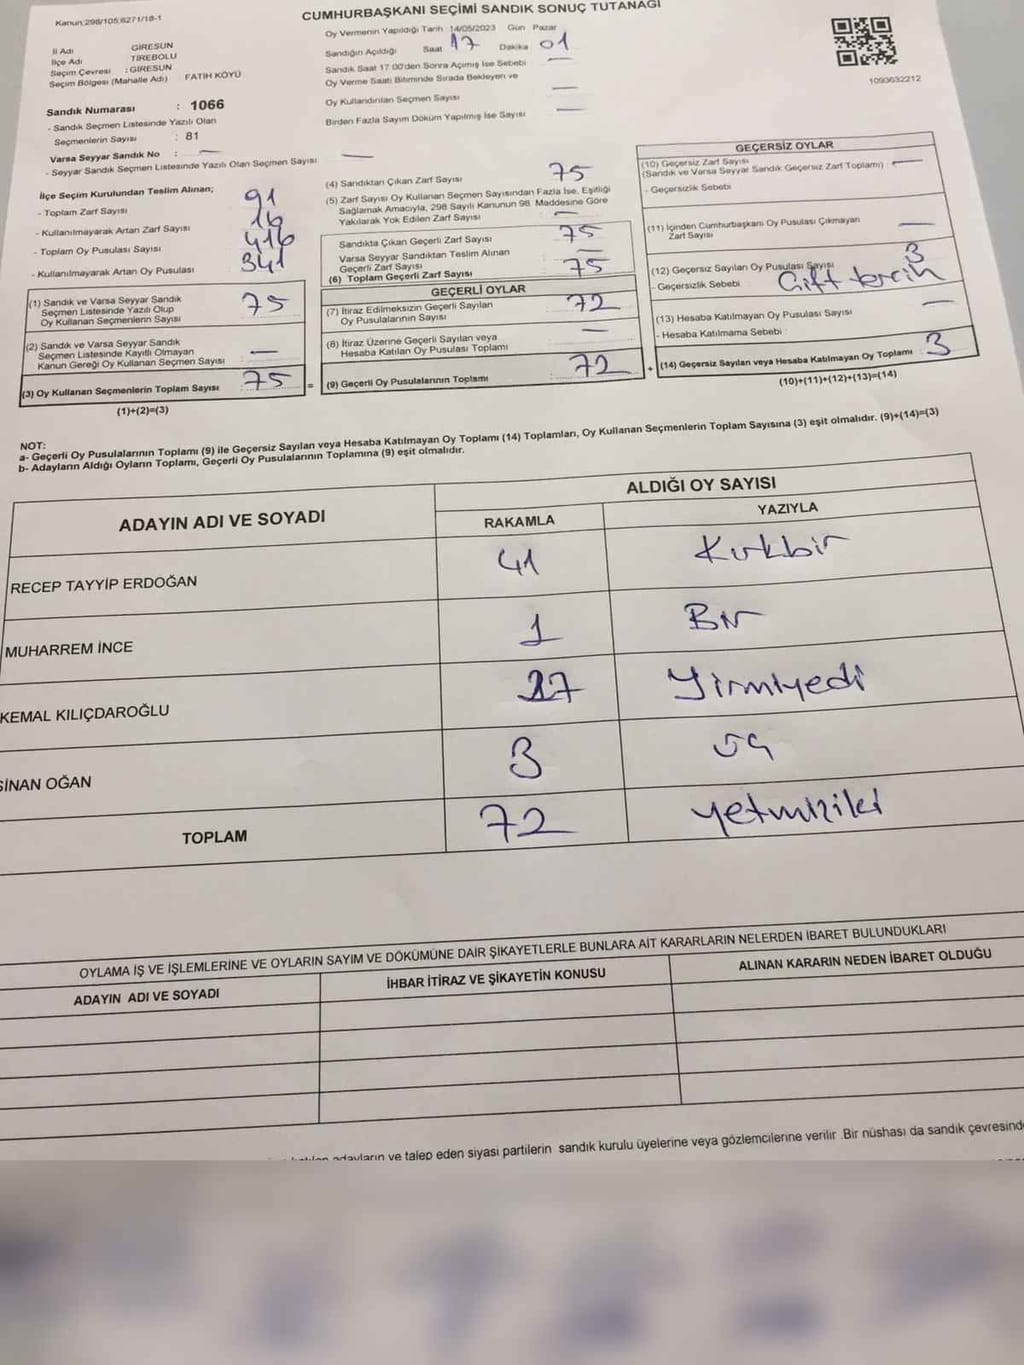 Kanun:298/105;6271/18-1
CUMHURBAŞKANI SEÇİMİ SANDIK SONUÇ TUTANAĞI
İl Adı : GİRESUN
İlçe Adı TİREBOLU
Seçim Çevresi : GİRESUN
Seçim Bölgesi (Mahalle Adı) FATİH KÖYÜ
Sandık Numarası : 1066
- Sandık Seçmen Listesinde Yazılı Olan
Seçmenlerin Sayısı : 81
Varsa Seyyar Sandık No : —
- Seyyar Sandık Seçmen Listesinde Yazılı Olan Seçmen Sayısı —
Oy Vermenin Yapıldığı Tarih 14/05/2023 Gün Pazar
Sandığın Açıldığı Saat 17 Dakika 01
Sandık Saat 17:00'den Sonra Açımış İse Sebebi —
Oy Verme Saati Bitiminde Sırada Bekleyen ve
Oy Kullandırılan Seçmen Sayısı —
Birden Fazla Sayım Döküm Yapılmış İse Sayısı —
1093632212
İlçe Seçim Kurulundan Teslim Alınan;
- Toplam Zarf Sayısı 91
- Kullanılmayarak Artan Zarf Sayısı 16
- Toplam Oy Pusulası Sayısı 416
- Kullanılmayarak Artan Oy Pusulası 341
(1) Sandık ve Varsa Seyyar Sandık
Seçmen Listesinde Yazılı Olup
Oy Kullanan Seçmenlerin Sayısı 75
(2) Sandık ve Varsa Seyyar Sandık
Seçmen Listesinde Kayıtlı Olmayan
Kanun Gereği Oy Kullanan Seçmen Sayısı —
(3) Oy Kullanan Seçmenlerin Toplam Sayısı 75 =
(1)+(2)=(3)
(4) Sandıktan Çıkan Zarf Sayısı 75
(5) Zarf Sayısı Oy Kullanan Seçmen Sayısından Fazla İse, Eşitliği
Sağlamak Amacıyla, 298 Sayılı Kanunun 98. Maddesine Göre
Yakılarak Yok Edilen Zarf Sayısı —
Sandıkta Çıkan Geçerli Zarf Sayısı 75
Varsa Seyyar Sandıktan Teslim Alınan
Geçerli Zarf Sayısı —
(6) Toplam Geçerli Zarf Sayısı 75
GEÇERLİ OYLAR
(7) İtiraz Edilmeksizin Geçerli Sayılan
Oy Pusulalarının Sayısı 72
(8) İtiraz Üzerine Geçerli Sayılan veya
Hesaba Katılan Oy Pusulası Toplamı —
(9) Geçerli Oy Pusulalarının Toplamı 72 +
GEÇERSİZ OYLAR
(10) Geçersiz Zarf Sayısı
(Sandık ve Varsa Seyyar Sandık Geçersiz Zarf Toplamı) —
- Geçersizlik Sebebi
(11) İçinden Cumhurbaşkanı Oy Pusulası Çıkmayan
Zarf Sayısı —
(12) Geçersiz Sayılan Oy Pusulası Sayısı 3
- Geçersizlik Sebebi : Çift tercih
(13) Hesaba Katılmayan Oy Pusulası Sayısı —
- Hesaba Katılmama Sebebi :
(14) Geçersiz Sayılan veya Hesaba Katılmayan Oy Toplamı 3
(10)+(11)+(12)+(13)=(14)
NOT:
a- Geçerli Oy Pusulalarının Toplamı (9) ile Geçersiz Sayılan veya Hesaba Katılmayan Oy Toplamı (14) Toplamları, Oy Kullanan Seçmenlerin Toplam Sayısına (3) eşit olmalıdır. (9)+(14)=(3)
b- Adayların Aldığı Oyların Toplamı, Geçerli Oy Pusulalarının Toplamına (9) eşit olmalıdır.
ADAYIN ADI VE SOYADI ALDIĞI OY SAYISI
RAKAMLA YAZIYLA
RECEP TAYYİP ERDOĞAN 41 Kırkbir
MUHARREM İNCE 1 Bir
KEMAL KILIÇDAROĞLU 27 Yirmiyedi
SİNAN OĞAN 3 üç
TOPLAM 72 yetmişiki
OYLAMA İŞ VE İŞLEMLERİNE VE OYLARIN SAYIM VE DÖKÜMÜNE DAİR ŞİKAYETLERLE BUNLARA AİT KARARLARIN NELERDEN İBARET BULUNDUKLARI
ADAYIN ADI VE SOYADI İHBAR İTİRAZ VE ŞİKAYETİN KONUSU ALINAN KARARIN NEDEN İBARET OLDUĞU
adayların ve talep eden siyasi partilerin sandık kurulu üyelerine veya gözlemcilerine verilir .Bir nüshası da sandık çevresind